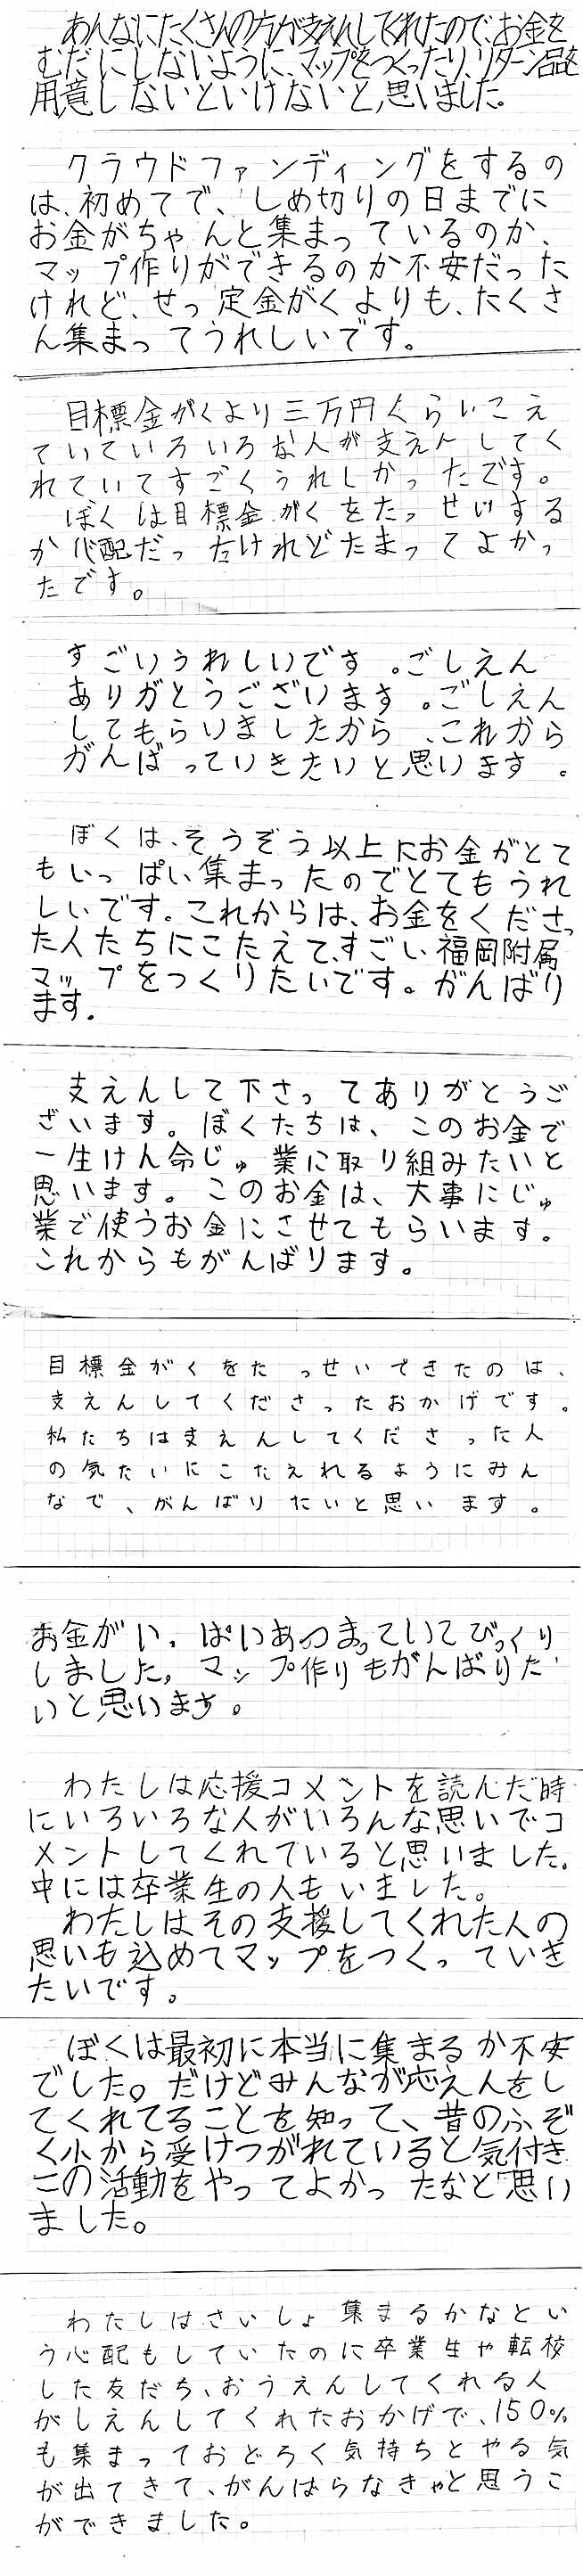 あんなにたくさんの方が支えんしてくれたので、お金を
むだにしないように、マップをつくったり、リターン品を
用意しないといけないと、思いました。
クラウドファンディングをするの
は、初めてで、しめ切りの日までに
お金がちゃんと集まっているのか、
マップ作りができるのか不安だった
けれど、せっ定金がくよりも、たくさ
ん集まってうれしいです。
目標金がくより三万円くらいこえ
ていていろいろな人が支えんしてく
れていてすごくうれしかったです。
ぼくは目標金がくをたっせいする
か心配だったけれどたまってよかっ
たです。
すごいうれしいです。ごしえん
ありがとうございます。ごしえん
してもらいましたから、これから
がんばっていきたいと思います。
ぼくは、そうぞう以上にお金がとて
もいっぱい集まったのでとてもうれ
しいです。これからは、お金をくださっ
た人たちにこたえて、すごい福岡附属
マップをつくりたいです。がんばり
ます.
支えんして下さってありがとうご
ざいます。ぼくたちは、このお金で
一生けん命じゅ業に取り組みたいと
思います。このお金は、大事にじゅ
業で使うお金にさせてもらいます。
これからもがんばります。
目標金がくをたっせいできたのは、
支えんしてくださったおかげです。
私たちは支えんしてくださった人
の気たいにこたえれるようにみん
なで、がんばりたいと思います。
お金がいっぱいあつまっていてびっくり
しました。マップ作りもがんばりた
いと思います。
わたしは応援コメントを読んだ時
にいろいろな人がいろんな思いでコ
メントしてくれていると思いました。
中には卒業生の人もいました。
わたしはその支援してくれた人の
思いも込めてマップをつくっていき
たいです。
ぼくは最初に本当に集まるか不安
でした。だけどみんなが応えんをし
てくれてることを知って、昔のふぞ
く小から受けつがれていると気付き
この活動をやってよかったなと思い
ました。
わたしはさいしょ集まるかなとい
う心配もしていたのに卒業生や転校
した友だち、おうえんしてくれる人
がしえんしてくれたおかげで、150%
も集まっておどろく気持ちとやる気
が出てきて、がんばらなきゃと思うこ
ができました。